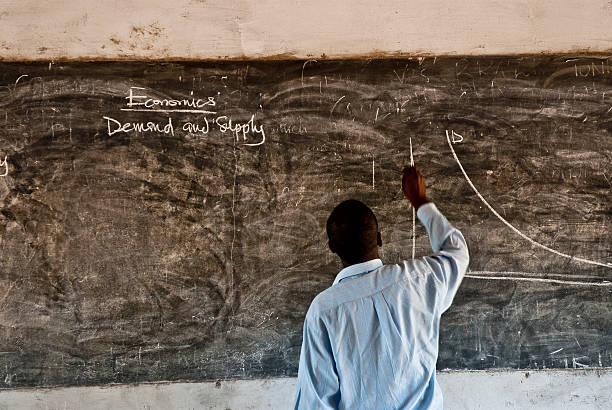 Economics
Demand and Supply
D